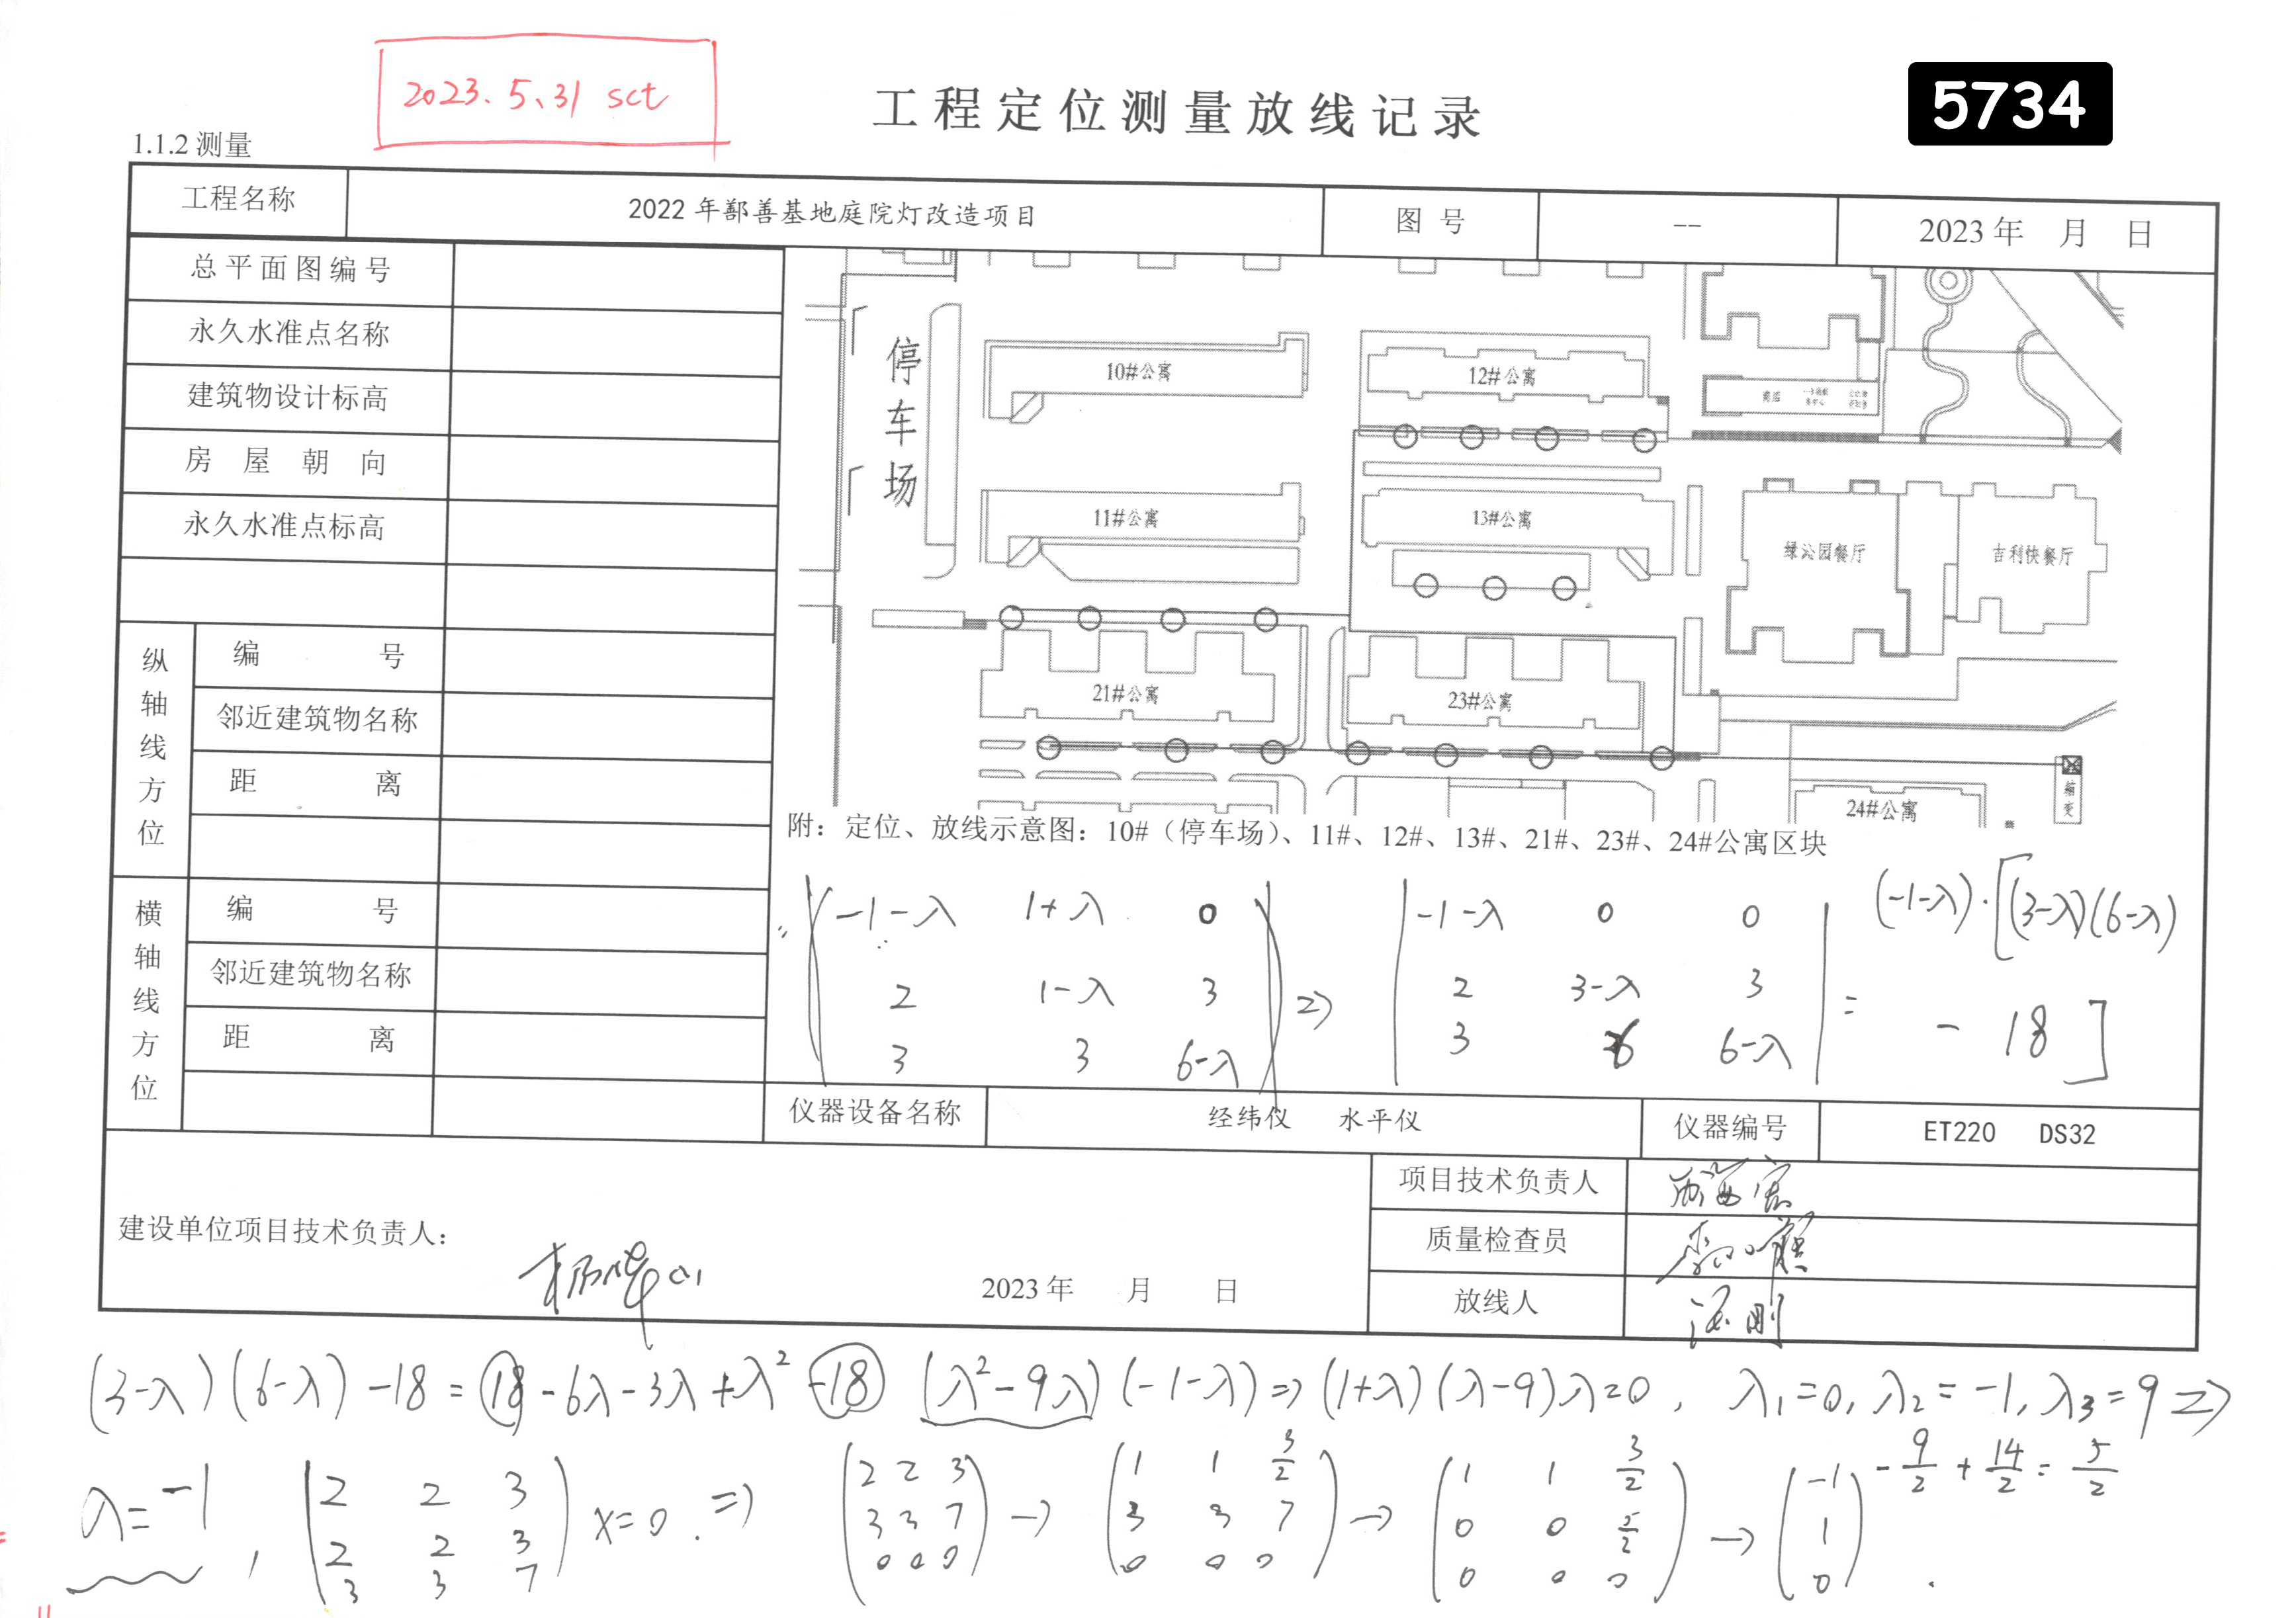 2023.5.31 sct
工程定位测量放线记录
5734
1.1.2 测量
工程名称
2022 年鄯善基地庭院灯改造项目
图 号
--
2023 年 月 日
总平面图编号
永久水准点名称
建筑物设计标高
房屋朝向
永久水准点标高
纵轴线方位
编 号
邻近建筑物名称
距 离
横轴线方位
编 号
邻近建筑物名称
距 离
停车场
10#公寓
12#公寓
11#公寓
13#公寓
绿沁园餐厅
吉利快餐厅
21#公寓
23#公寓
24#公寓
箱变
附：定位、放线示意图：10#（停车场）、11#、12#、13#、21#、23#、24#公寓区块
-1-λ 1+λ 0
2 1-λ 3
3 3 6-λ
=>
-1-λ 0 0
2 3-λ 3
3 6 6-λ
=
(-1-λ)·[(3-λ)(6-λ)
- 18]
仪器设备名称
经纬仪 水平仪
仪器编号
ET220 DS32
建设单位项目技术负责人：
2023 年 月 日
项目技术负责人
质量检查员
放线人
(3-λ)(6-λ)-18=18-6λ-3λ+λ²-18 (λ²-9λ)(-1-λ)=>(1+λ)(λ-9)λ=0, λ₁=0, λ₂=-1, λ₃=9=>
λ=-1,
2 2 3
2 2 3
3 3 7
x=0. =>
2 2 3
3 3 7
0 0 0
→
1 1 3/2
3 3 7
0 0 0
→
1 1 3/2
0 0 5/2
0 0 0
→
-1
1
0
-9/2+14/2=5/2